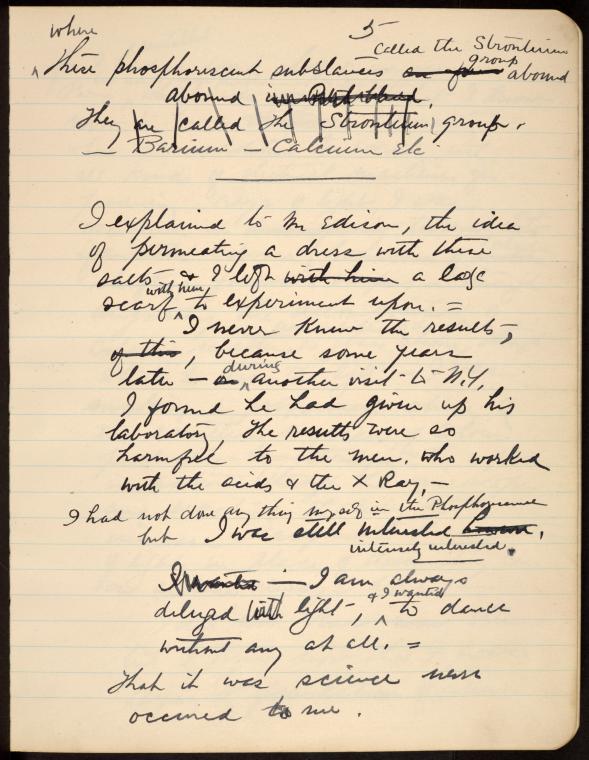 5
where
called the Strontium
group
These phosphorescent substances abound
abound
They are called the Strontium group.
— Barium — Calcium Etc

I explained to Mr Edison, the idea
of permeating a dress with these
salts — & I left with him a large
with him,
scarf to experiment upon. =
I never knew the results,
of this, because some years
during
later — on another visit to N.Y.
I found he had given up his
laboratory, the results were so
harmful to the men. who worked
with the acids & the X Ray, —
I had not done any thing myself in the Phosphorescence
but I was still interested
intensely interested.
I wanted — I am always
& I wanted
deluged with light —, to dance
without any at all. =
That it was science never
occured to me.